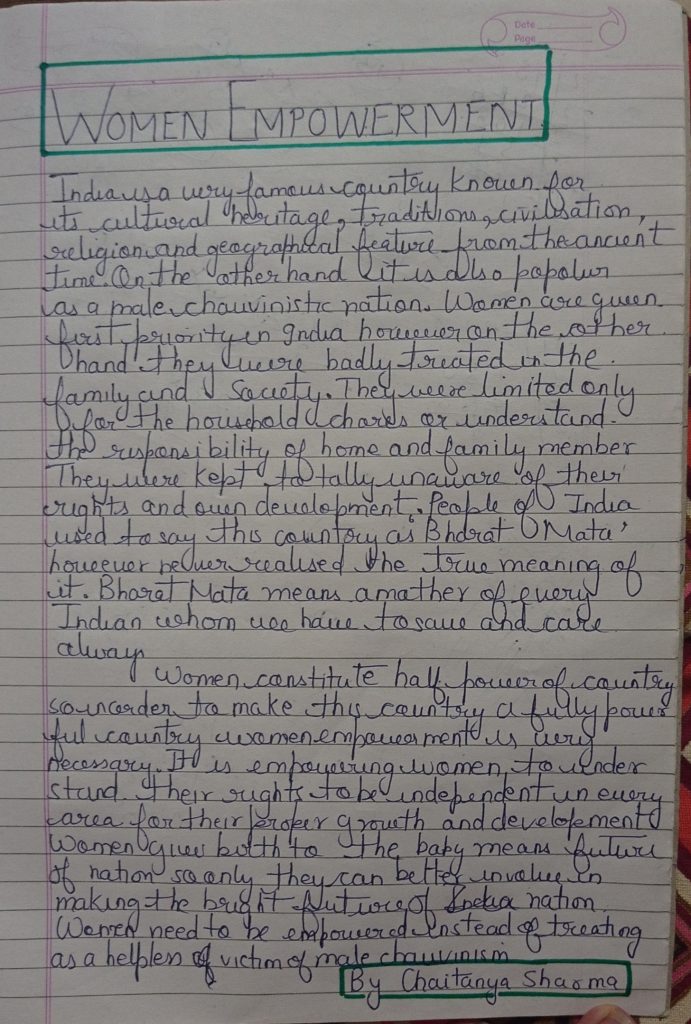 Date
Page
WOMEN EMPOWERMENT
India is a very famous country known for
its cultural heritage, traditions, civilisation,
religion and geographical feature from the ancient
time. On the other hand it is also popolur
as a male chauvinistic nation. Women are queen
first priority in India however on the other
hand they were badly treated in the
family and Society. They were limited only
for the household chares or understand
the responsibility of home and family member
They were kept totally unaware of their
rights and own development. People of India
used to say this country as 'Bharat Mata'
however never realised the true meaning of
it. Bharat Mata means a mather of every
Indian whom we have to save and care
always
Women constitute half power of country
so in order to make this country a fully power
ful country women empowerment is very
necessary. It is empowering women to under
stand their rights to be independent in every
area for their proper growth and development
Women gives birth to the baby means future
of nation so only they can better involve in
making the bright future of India nation.
Women need to be empowered instead of treating
as a helpless of victim of male chauvinism
By Chaitanya Sharma